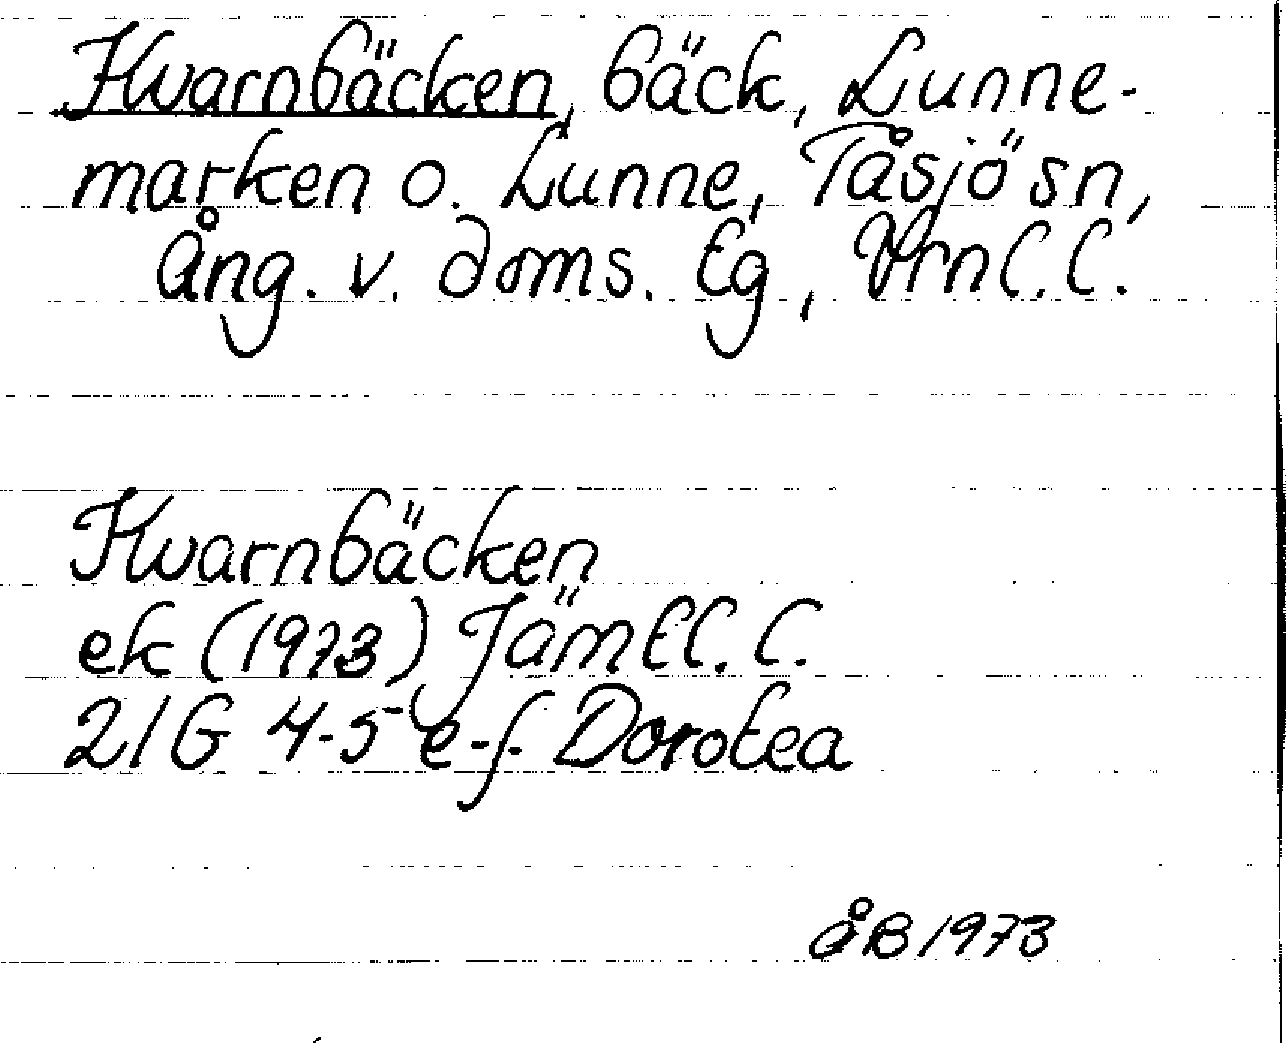 Kvarnbäcken, bäck, Lunne-
marken o. Lunne, Tåsjö sn,
Ång. v. doms. tg, Vrnl. l.
Kvarnbäcken
ek (1973) Jämtl. l.
21G 4-5 e-f Dorotea
ÅB 1973